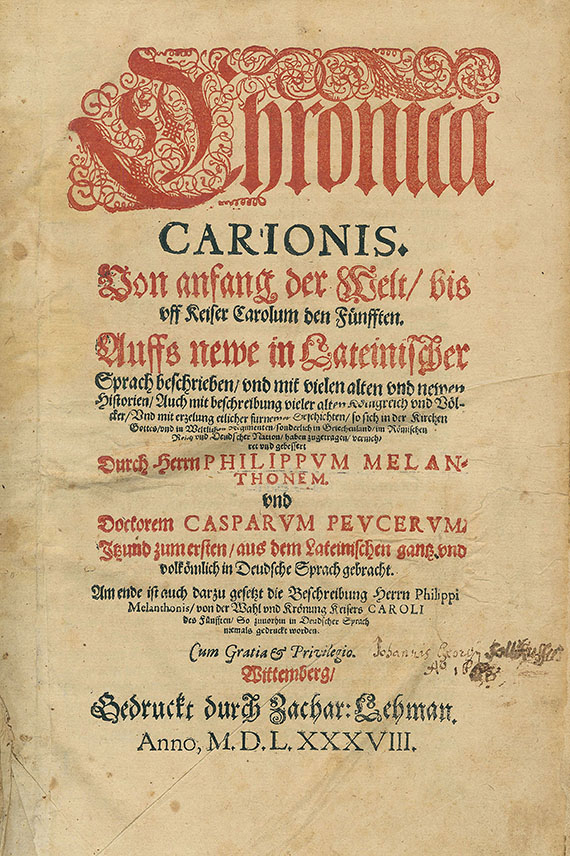 Chronica
CARIONIS.
Von anfang der Welt/ bis
vff Keiser Carolum den Fünfften.
Auffs newe in Lateinischer
Sprach beschrieben/ vnd mit vielen alten vnd newen
Historien/ Auch mit beschreibung vieler alten Königreich vnd Völ-
cker/ Vnd mit erzelung etlicher fürnemer Geschichten/ so sich in der Kirchen
Gottes/ vnd in Weltlichen Regimenten/ sonderlich in Griechenland/ im Römischen
Reich vnd Deudscher Nation/ haben zugetragen/ vermeh/
ret vnd gebessert
Durch Herrn PHILIPPVM MELAN-
THONEM.
vnd
Doctorem CASPARVM PEVCERVM/
Jtzund zum ersten/ aus dem Lateinischen gantz vnd
volkömlich in Deudsche Sprach gebracht.
Am ende ist auch darzu gesetzt die Beschreibung Herrn Philippi
Melanthonis/ von der Wahl vnd Krönung Keisers CAROLI
des Fünfften/ So zuuorhin in Deudscher Sprach
niemals gedruckt worden.
Cum Gratia & Privilegio. Johannes Georgii
Ao
Wittemberg/
Gedruckt durch Zachar: Lehman.
Anno, M. D. L. XXXVIII.